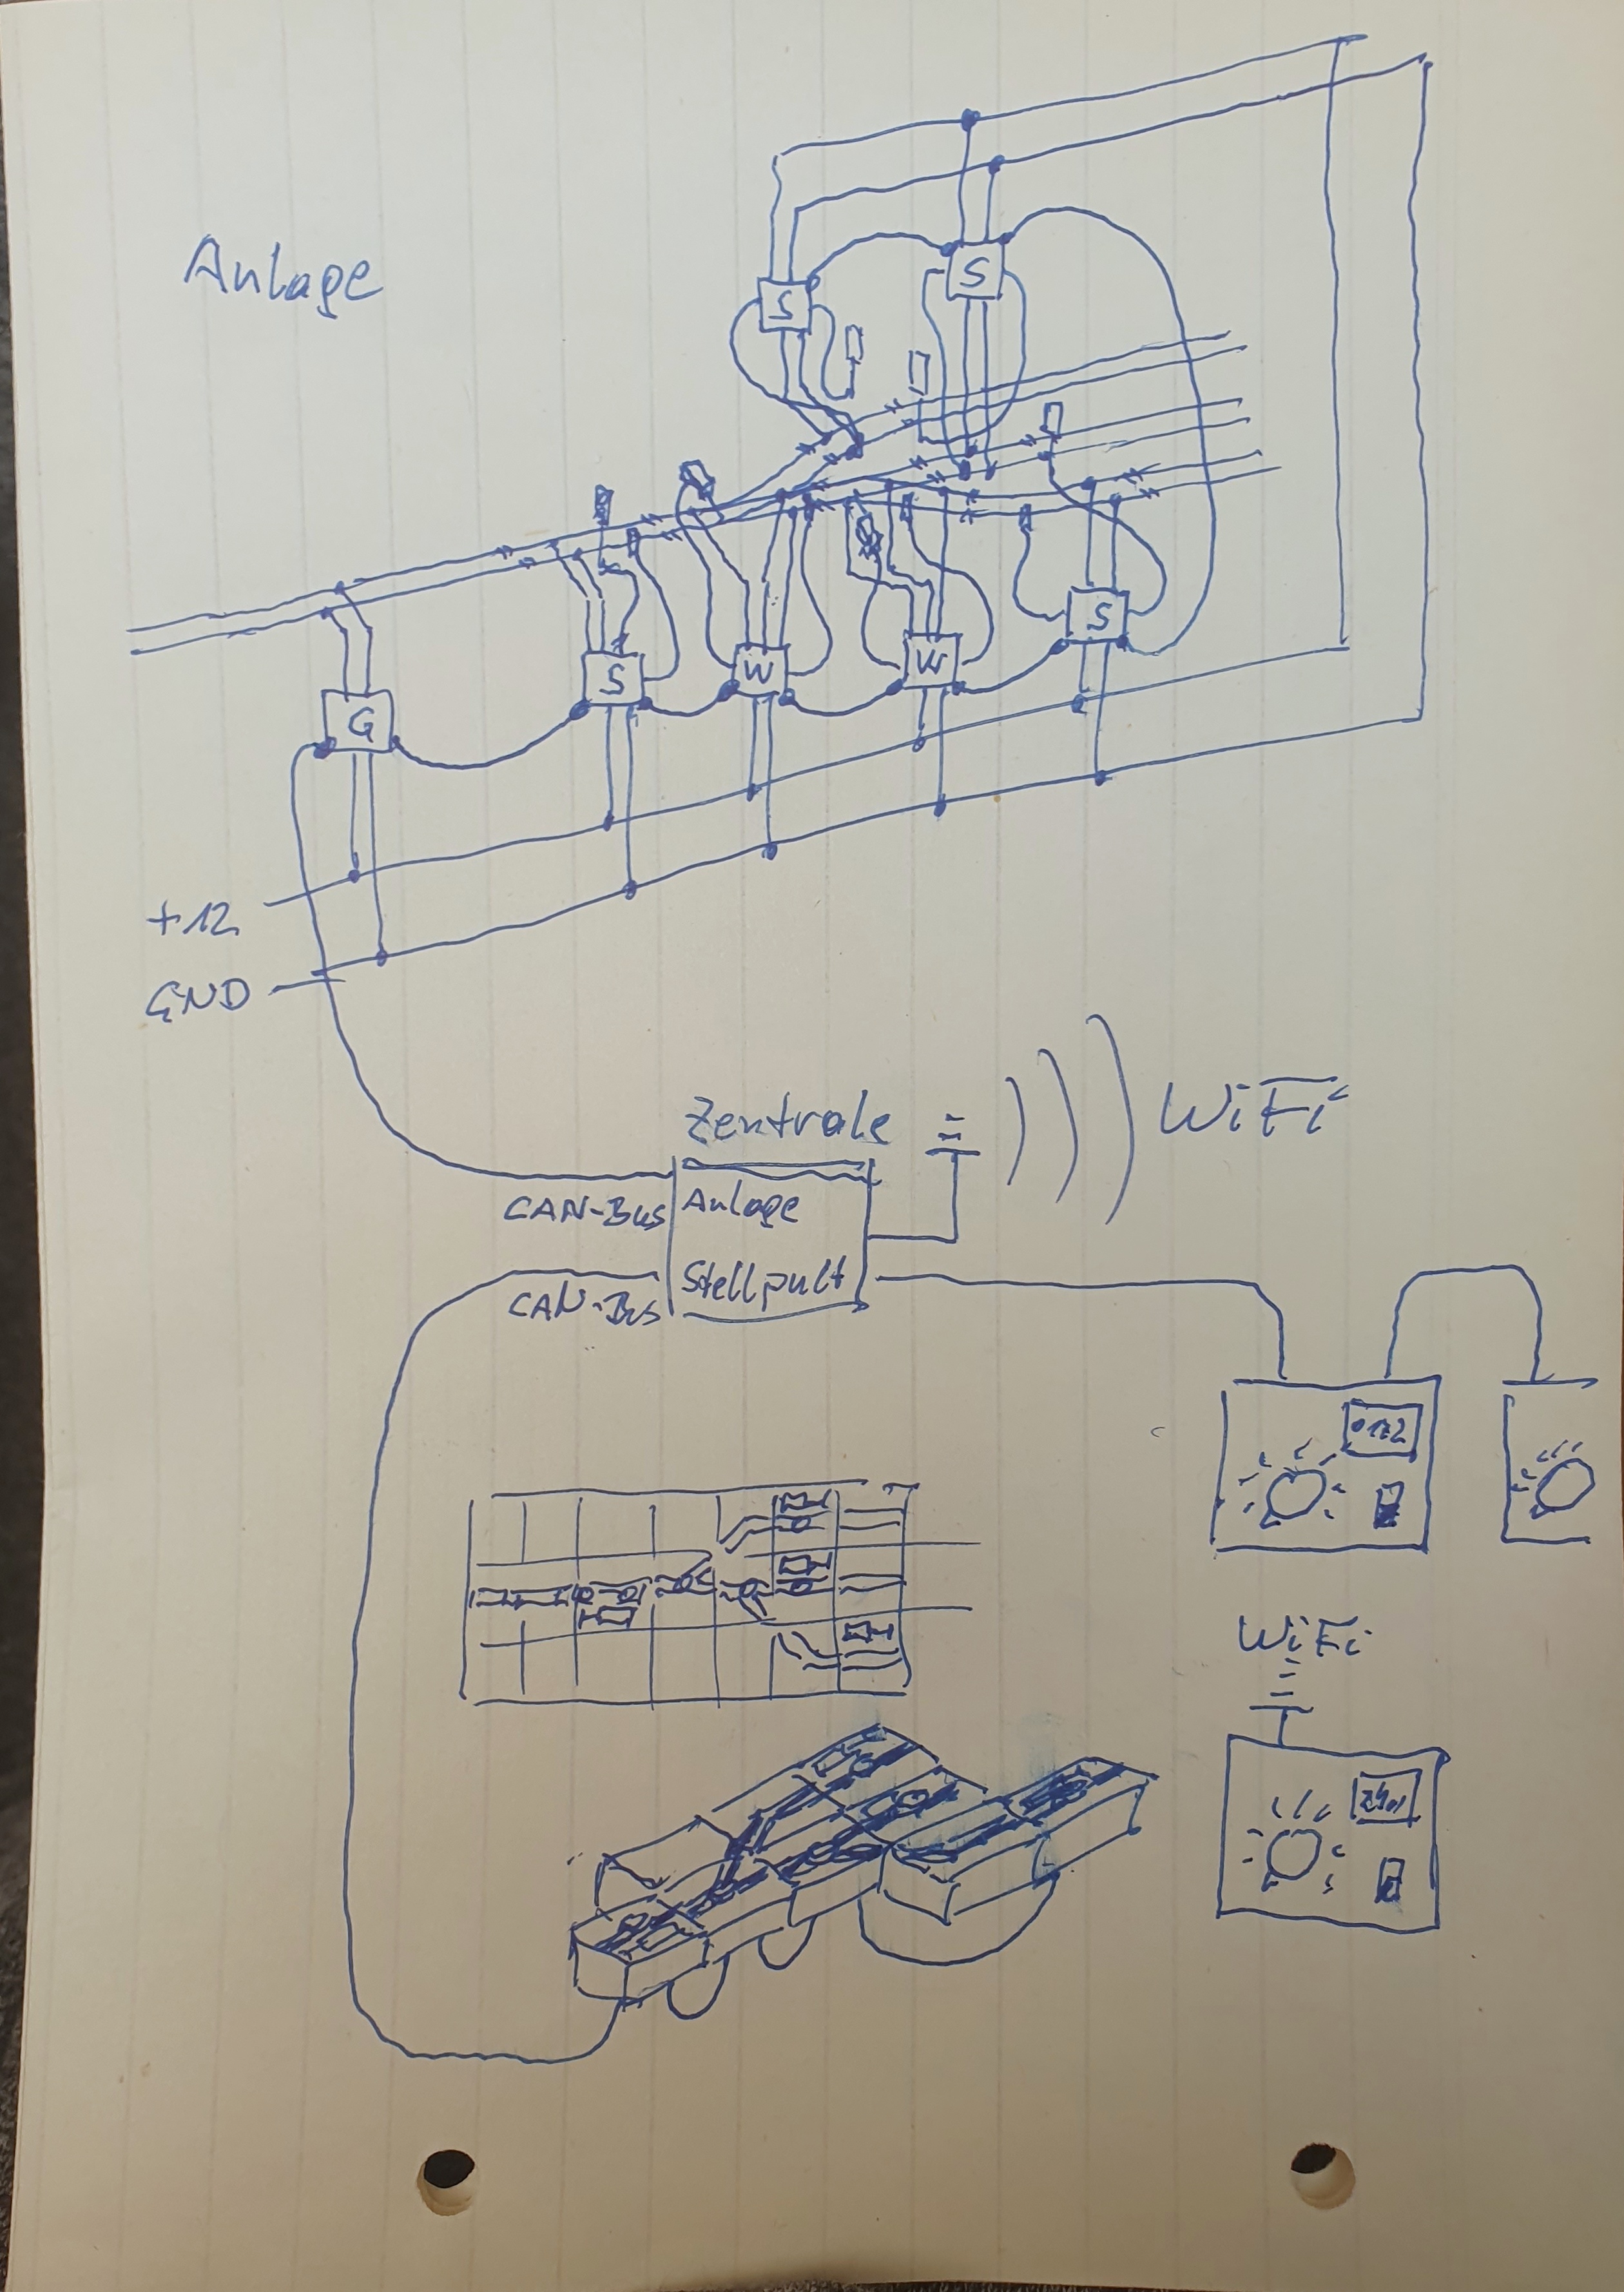 Anlage
S
S
S
S
W
W
G
+12
GND
Zentrale
WiFi
CAN-Bus
Anlage
CAN-Bus
Stellpult
WiFi